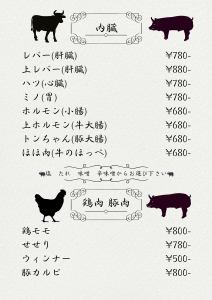 内臓
レバー(肝臓) ¥780-
上レバー(肝臓) ¥880-
ハツ(心臓) ¥780-
ミノ(胃) ¥780-
ホルモン(小腸) ¥680-
上ホルモン(牛大腸) ¥680-
トンちゃん(豚大腸) ¥680-
ほほ肉(牛のほっぺ) ¥680-
塩 たれ 味噌 辛味噌からお選び下さい
鶏肉 豚肉
鶏モモ ¥800-
せせり ¥780-
ウィンナー ¥500-
豚カルビ ¥800-